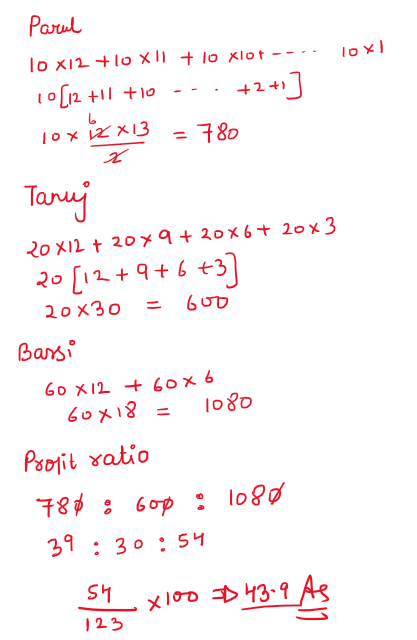 Parul
10 × 12 + 10 × 11 + 10 × 10 + - - - - 10 × 1
10 [12 + 11 + 10 - - - - + 2 + 1]
6
10 × 12 × 13 = 780
2
Taruj
20 × 12 + 20 × 9 + 20 × 6 + 20 × 3
20 [12 + 9 + 6 + 3]
20 × 30 = 600
Bansi
60 × 12 + 60 × 6
60 × 18 = 1080
Profit ratio
780 : 600 : 1080
39 : 30 : 54
54
× 100 ⇒ 43.9 As
123